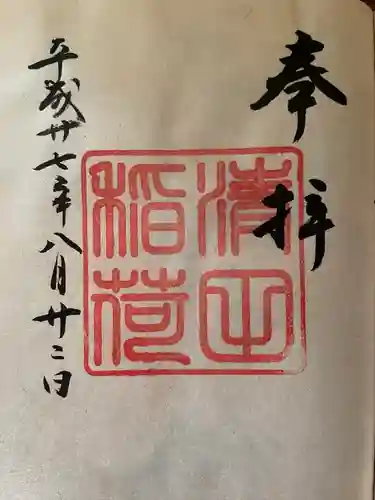 奉拝
清田
稲荷
平成廿七年八月廿二日